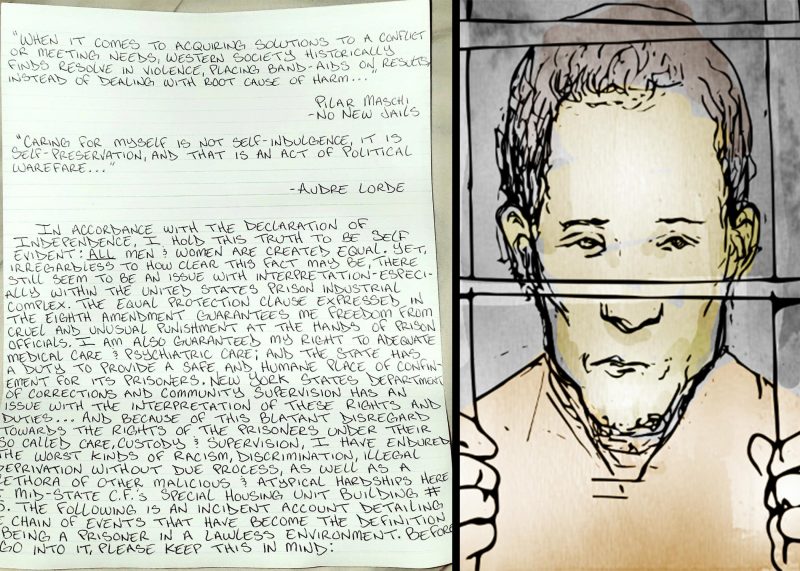 "WHEN IT COMES TO ACQUIRING SOLUTIONS TO A CONFLICT
OR MEETING NEEDS, WESTERN SOCIETY HISTORICALLY
FINDS RESOLVE IN VIOLENCE, PLACING BAND-AIDS ON RESULTS,
INSTEAD OF DEALING WITH ROOT CAUSE OF HARM..."
PILAR MASCHI
-NO NEW JAILS
"CARING FOR MYSELF IS NOT SELF-INDULGENCE, IT IS
SELF-PRESERVATION, AND THAT IS AN ACT OF POLITICAL
WAREFARE..."
-AUDRE LORDE
IN ACCORDANCE WITH THE DECLARATION OF
INDEPENDENCE, I HOLD THIS TRUTH TO BE SELF
EVIDENT: ALL MEN & WOMEN ARE CREATED EQUAL. YET,
IRREGARDLESS TO HOW CLEAR THIS FACT MAY BE, THERE
STILL SEEM TO BE AN ISSUE WITH INTERPRETATION-ESPECI-
ALLY WITHIN THE UNITED STATES PRISON INDUSTRIAL
COMPLEX. THE EQUAL PROTECTION CLAUSE EXPRESSED IN
THE EIGHTH AMENDMENT GUARANTEES ME FREEDOM FROM
CRUEL AND UNUSUAL PUNISHMENT AT THE HANDS OF PRISON
OFFICIALS. I AM ALSO GUARANTEED MY RIGHT TO ADEQUATE
MEDICAL CARE & PSYCHIATRIC CARE; AND THE STATE HAS
A DUTY TO PROVIDE A SAFE AND HUMANE PLACE OF CONFIN
EMENT FOR ITS PRISONERS. NEW YORK STATES DEPARTMENT
OF CORRECTIONS AND COMMUNITY SUPERVISION HAS AN
ISSUE WITH THE INTERPRETATION OF THESE RIGHTS AND
DUTIES... AND BECAUSE OF THIS BLATANT DISREGARD
TOWARDS THE RIGHTS OF THE PRISONERS UNDER THEIR
SO CALLED CARE, CUSTODY & SUPERVISION, I HAVE ENDURED
THE WORST KINDS OF RACISM, DISCRIMINATION, ILLEGAL
DEPRIVATION WITHOUT DUE PROCESS, AS WELL AS A
ETHORA OF OTHER MALICIOUS & ATYPICAL HARDSHIPS HERE
MID-STATE C.F.'S SPECIAL HOUSING UNIT BUILDING #
. THE FOLLOWING IS AN INCIDENT ACCOUNT DETAILING
CHAIN OF EVENTS THAT HAVE BECOME THE DEFINITION
BEING A PRISONER IN A LAWLESS ENVIRONMENT. BEFORE
GO INTO IT, PLEASE KEEP THIS IN MIND: